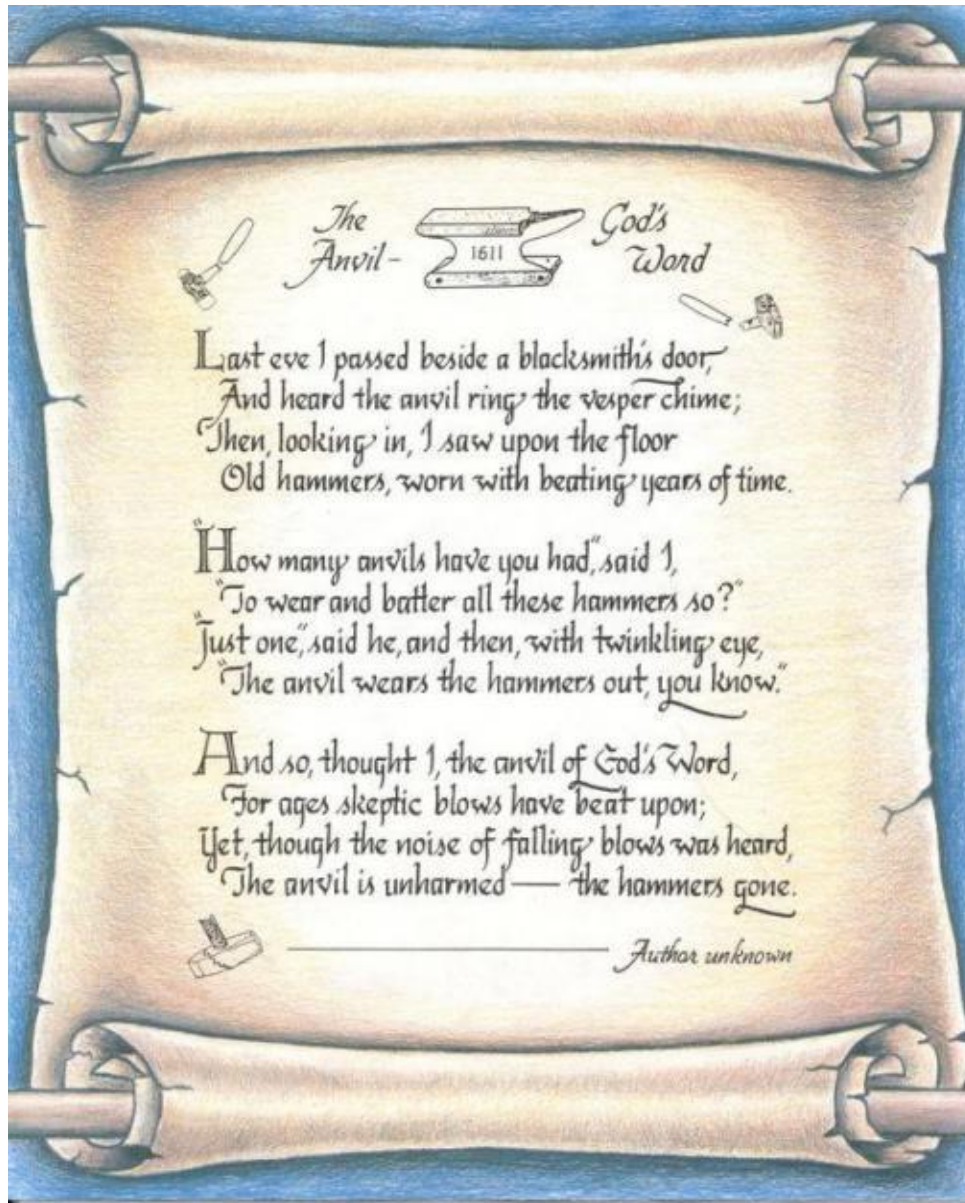 The
Anvil–
1611
God's
Word
Last eve I passed beside a blacksmith's door,
And heard the anvil ring the vesper chime;
Then, looking in, I saw upon the floor
Old hammers, worn with beating years of time.
"How many anvils have you had," said I,
"To wear and batter all these hammers so?"
"Just one," said he, and then, with twinkling eye,
"The anvil wears the hammers out, you know."
And so, thought I, the anvil of God's Word,
For ages skeptic blows have beat upon;
Yet, though the noise of falling blows was heard,
The anvil is unharmed — the hammers gone.
Author unknown